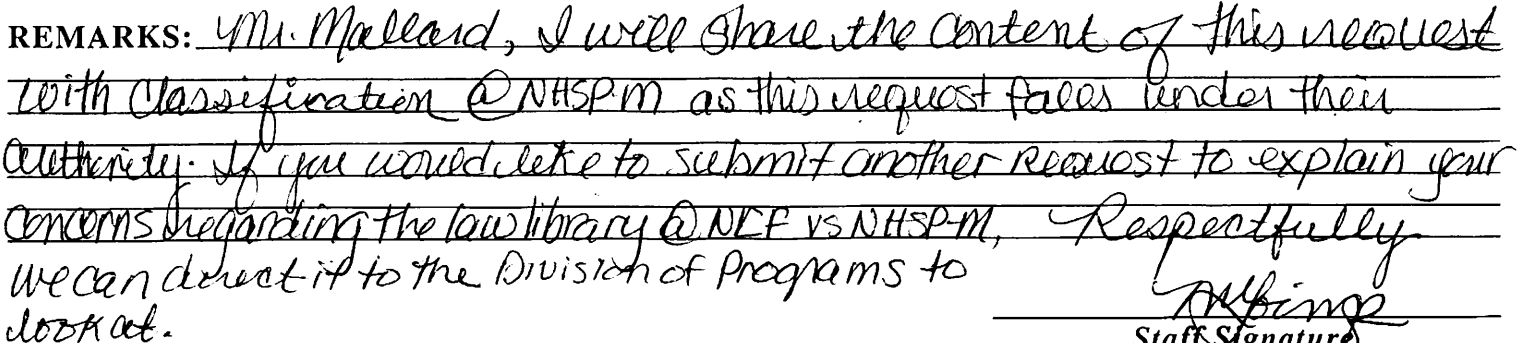 REMARKS: Mr. Mallard, I will share the content of this request
with Classification @ NHSP-M as this request falls under their
authority. If you would like to submit another request to explain your
concerns regarding the law library @ NCF vs NHSP-M, Respectfully
we can direct it to the Division of Programs to
look at.
Staff Signature